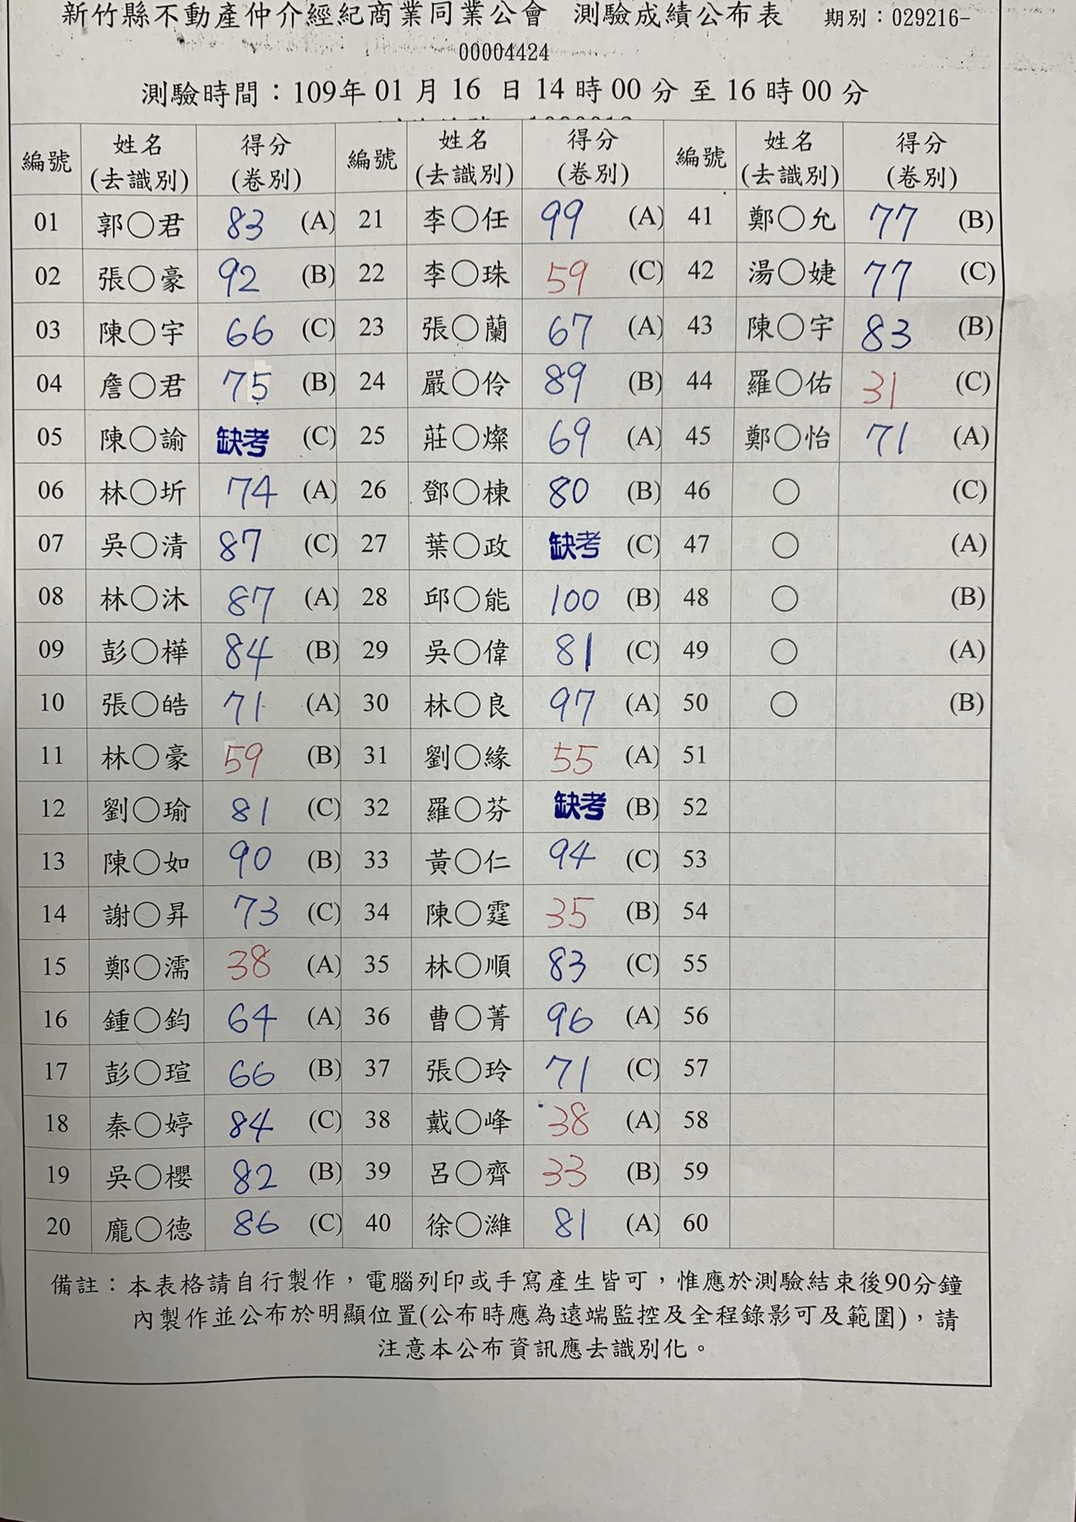 新竹縣不動產仲介經紀商業同業公會 測驗成績公布表 期別：029216-
00004424
測驗時間：109年 01 月 16 日 14 時 00 分 至 16 時 00 分
編號 姓名(去識別) 得分(卷別) 編號 姓名(去識別) 得分(卷別) 編號 姓名(去識別) 得分(卷別)
01 郭〇君 83 (A) 21 李〇任 99 (A) 41 鄭〇允 77 (B)
02 張〇豪 92 (B) 22 李〇珠 59 (C) 42 湯〇婕 77 (C)
03 陳〇宇 66 (C) 23 張〇蘭 67 (A) 43 陳〇宇 83 (B)
04 詹〇君 75 (B) 24 嚴〇伶 89 (B) 44 羅〇佑 31 (C)
05 陳〇諭 缺考 (C) 25 莊〇燦 69 (A) 45 鄭〇怡 71 (A)
06 林〇圻 74 (A) 26 鄧〇棟 80 (B) 46 〇 (C)
07 吳〇清 87 (C) 27 葉〇政 缺考 (C) 47 〇 (A)
08 林〇沐 87 (A) 28 邱〇能 100 (B) 48 〇 (B)
09 彭〇樺 84 (B) 29 吳〇偉 81 (C) 49 〇 (A)
10 張〇皓 71 (A) 30 林〇良 97 (A) 50 〇 (B)
11 林〇豪 59 (B) 31 劉〇緣 55 (A) 51
12 劉〇瑜 81 (C) 32 羅〇芬 缺考 (B) 52
13 陳〇如 90 (B) 33 黃〇仁 94 (C) 53
14 謝〇昇 73 (C) 34 陳〇霆 35 (B) 54
15 鄭〇濡 38 (A) 35 林〇順 83 (C) 55
16 鍾〇鈞 64 (A) 36 曹〇菁 96 (A) 56
17 彭〇瑄 66 (B) 37 張〇玲 71 (C) 57
18 秦〇婷 84 (C) 38 戴〇峰 38 (A) 58
19 吳〇櫻 82 (B) 39 呂〇齊 33 (B) 59
20 龐〇德 86 (C) 40 徐〇濰 81 (A) 60
備註：本表格請自行製作，電腦列印或手寫產生皆可，惟應於測驗結束後90分鐘
內製作並公布於明顯位置(公布時應為遠端監控及全程錄影可及範圍)，請
注意本公布資訊應去識別化。